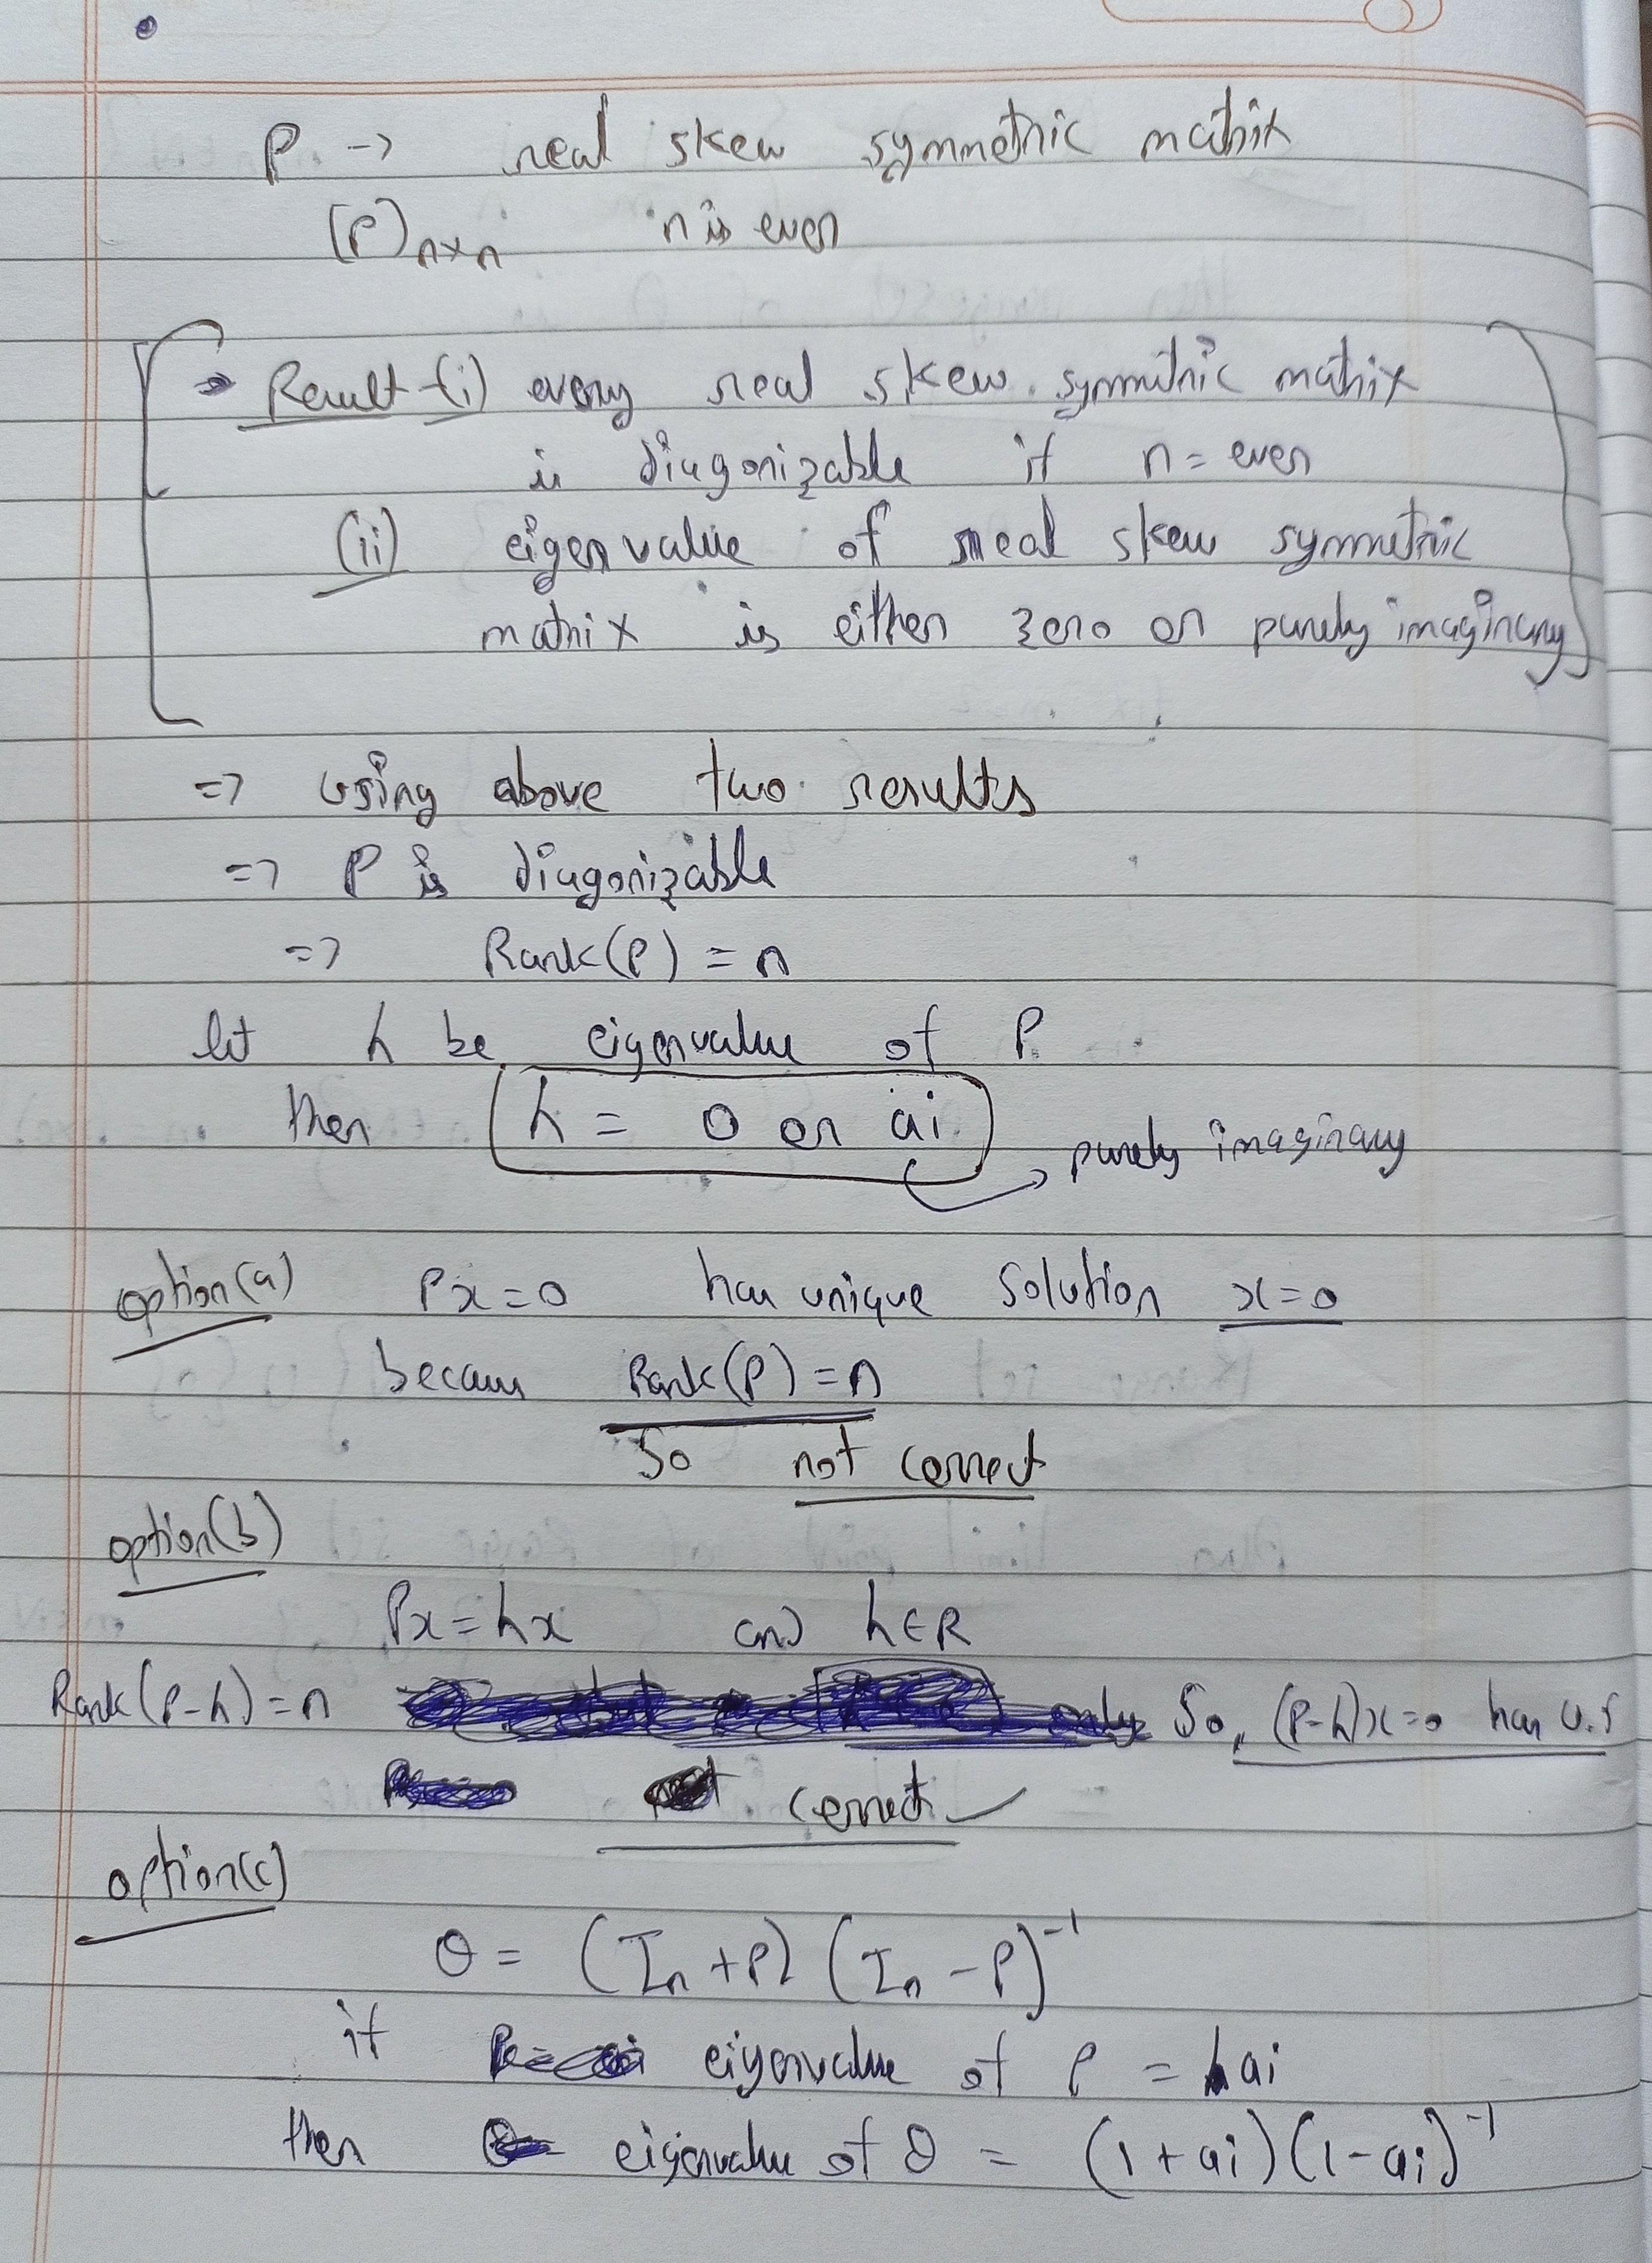 P → real skew symmetric matrix
(P)n×n n is even
→ Result-(i) every real skew symmetric matrix
is diagonizable if n = even
(ii) eigen value of real skew symmetric
matrix is either zero or purely imaginary
=> using above two results
=> P is diagonizable
=> Rank(P) = n
let h be eigenvalue of P
then h = 0 or ai
purely imaginary
option(a) Px=0 has unique solution x=0
becaus Rank(P) = n
So not correct
option(b)
Px = hx and h∈R
Rank(P-h) = n only So, (P-h)x=0 has U.S
correct ✓
option(c)
Q = (In + P) (In - P)^-1
if eigenvalue of P = ai
then eigenvalue of Q = (1+ai)(1-ai)^-1